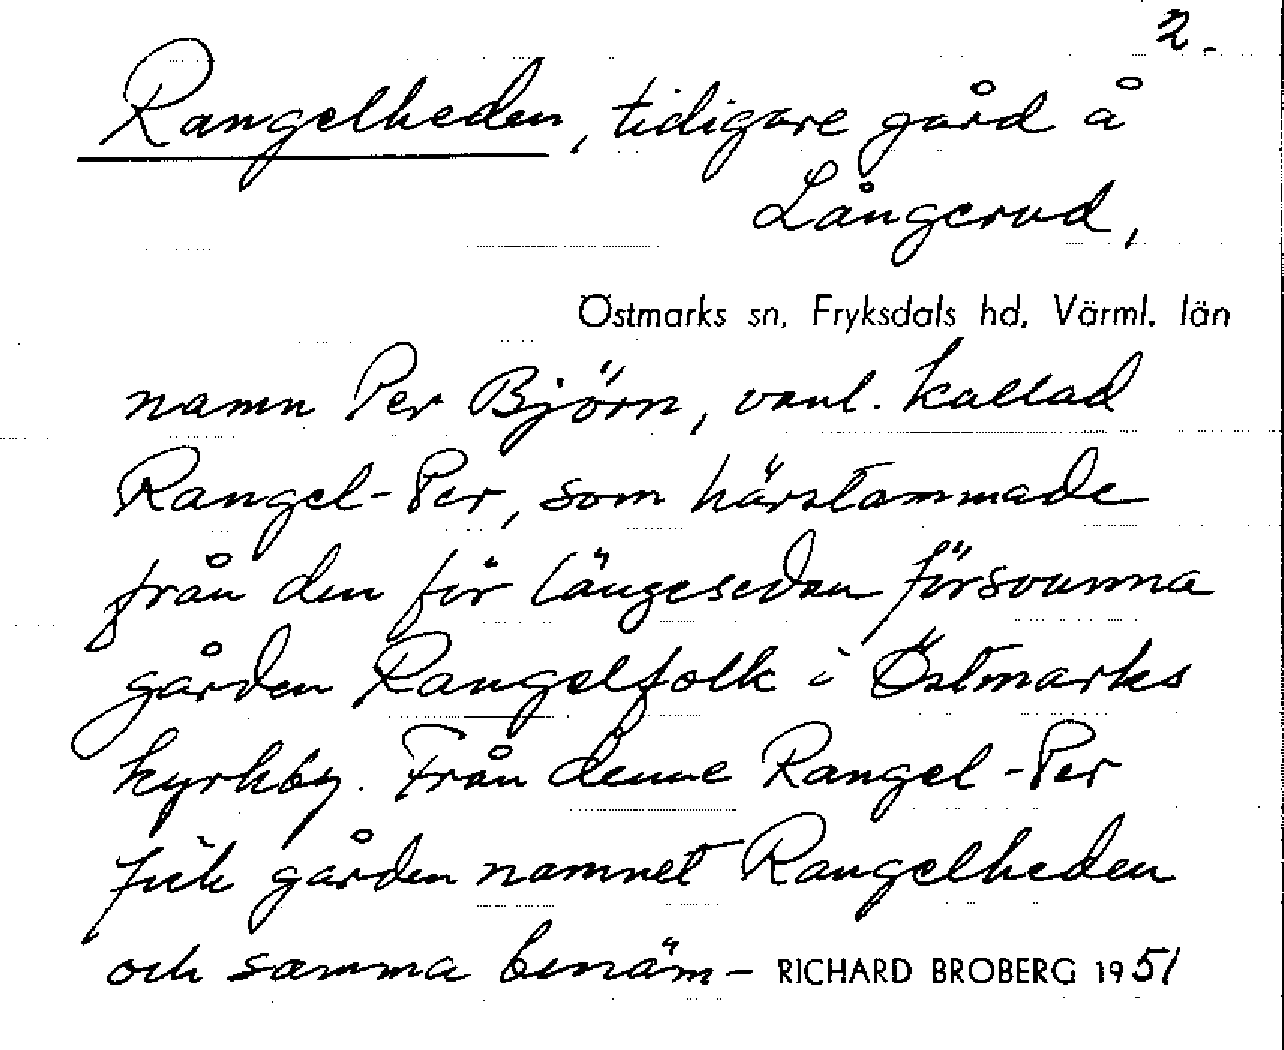 2.
Rangelheden, tidigare gård å
Långerud,
Östmarks sn, Fryksdals hd, Värml. län
namn Per Björn, vanl. kallad
Rangel-Per, som härstammade
från den för längesedan försvunna
gården Rangelfolk i Östmarks
kyrkby. Från denne Rangel-Per
fick gården namnet Rangelheden
och samma benäm- RICHARD BROBERG 1951